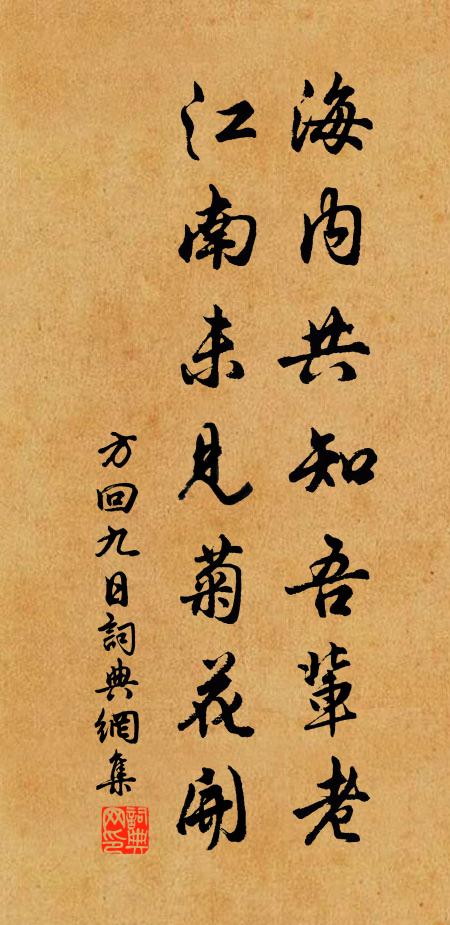 海内共知吾輩老
江南未見菊花開
方回九日詞典網集
詞典网印